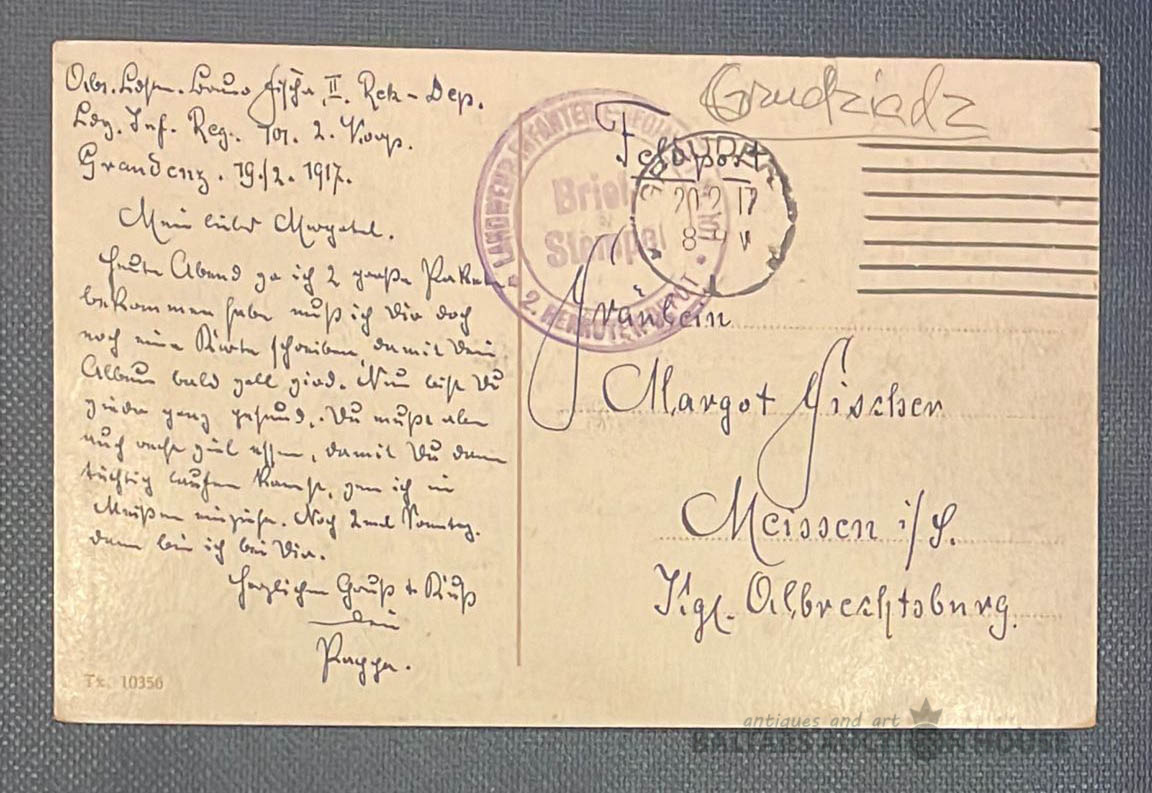 Obs. Ldstm. Bruno Fischer, II. Rek-Dep.
Ldw. Inf. Reg. 101. 2. Korp.
Graudenz. 19./2. 1917.
Mein liebes Margotel.
Heute Abend wo ich 2 große Paketen
bekommen habe muß ich Dir doch
noch eine Karte schreiben, damit Dein
Album bald voll wird. Nun bist Du
wieder ganz gesund. Du mußt aber
auch recht gut essen, damit Du dann
tüchtig laufen kannst, wenn ich in
Meißen einziehe. Noch 2 mal Sonntag.
dann bin ich bei Dir.
Herzlichen Gruß & Kuß
Dein
Pappa.
Tx. 10356
Grudziadz
Feldpost
LANDWEHR INFANTERIE
Brief
Stempel
101
2. REKRUTEN DEPOT
GRAUDENZ
20 2 17
8-9 V
Fräulein
Margot Fischer
Meissen i/S.
Kgl. Albrechtsburg.
antiques and art
BALTAES AUCTION HOUSE